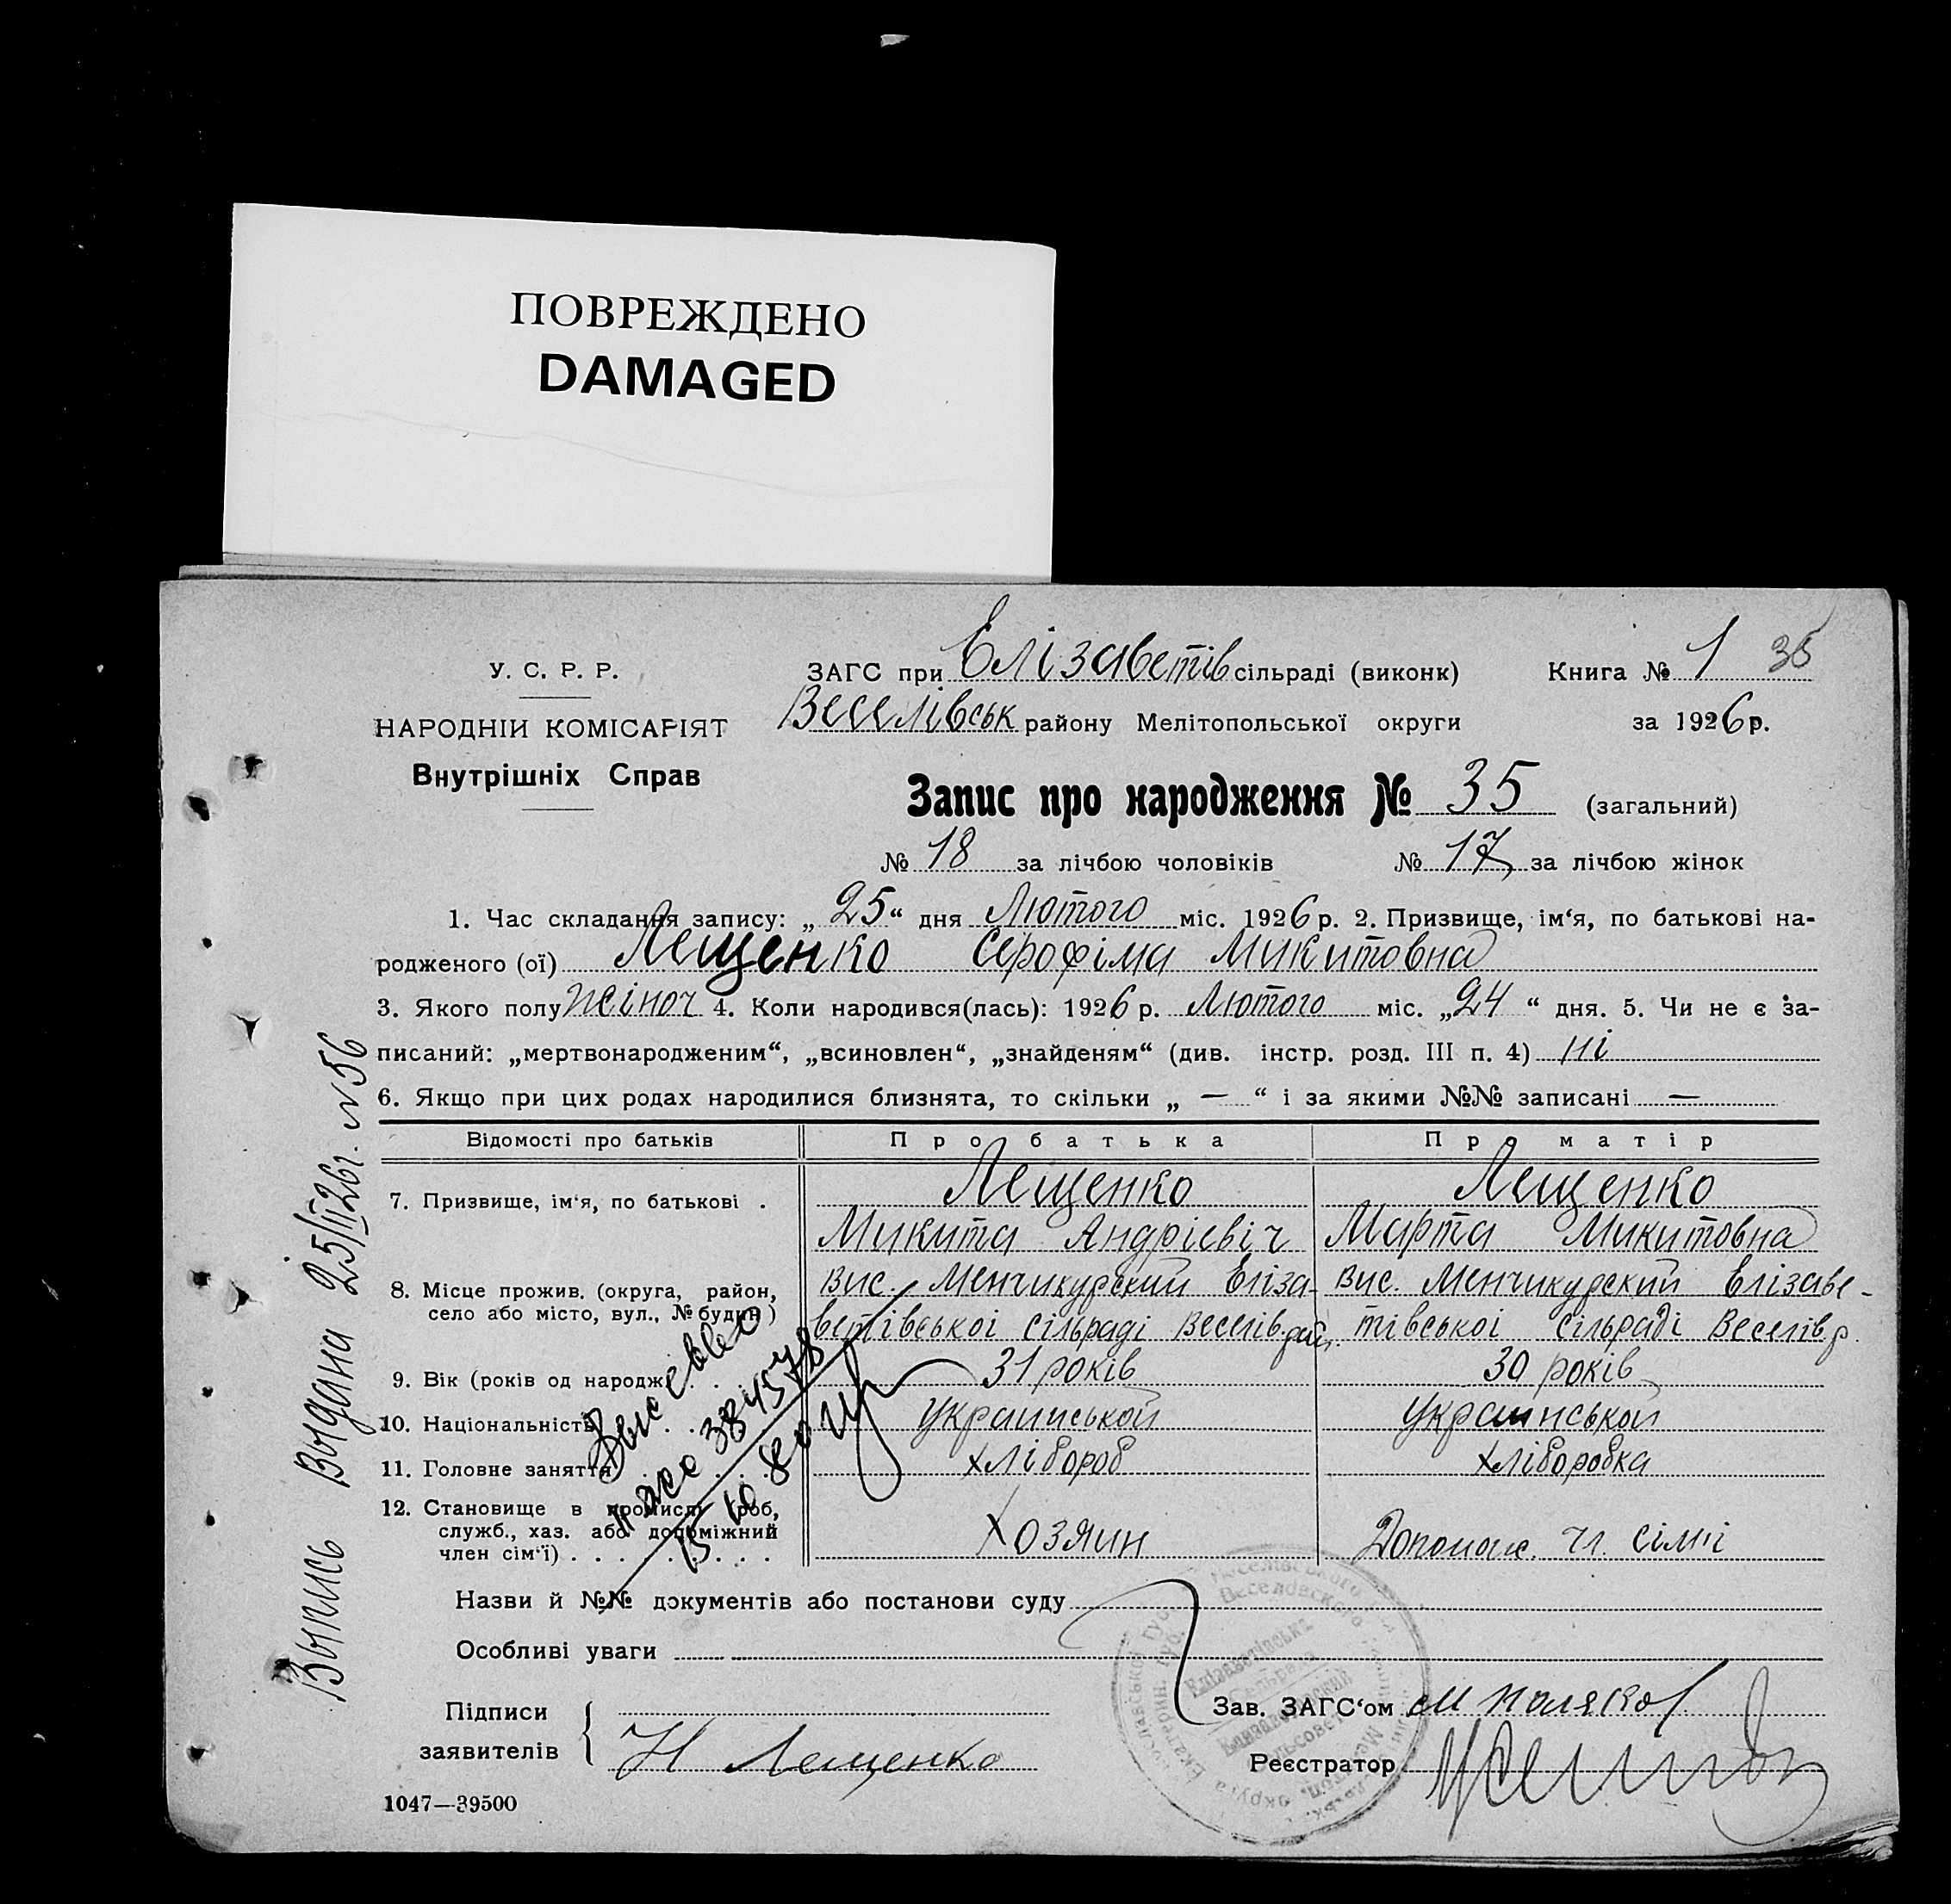 ПОВРЕЖДЕНО
DAMAGED
У. С. Р. Р.
НАРОДНІЙ КОМІСАРІЯТ
Внутрішніх Справ
ЗАГС при Елізаветів сільраді (виконк)
Книга № 1 35
Веселівськ району Мелітопольської округи
за 1926 р.
Запис про народження № 35 (загальний)
№ 18 за лічбою чоловіків № 17 за лічбою жінок
1. Час складання запису: „25“ дня Лютого міс. 1926 р. 2. Призвище, ім‘я, по батькові на-
родженого (ої) Лещенко Серофіма Микитовна
3. Якого полу жіноч 4. Коли народився(лась): 1926 р. Лютого міс. „24“ дня. 5. Чи не є за-
писаний: „мертвонародженим“, „всиновлен“, „знайденям“ (див. інстр. розд. III п. 4) ні
6. Якщо при цих родах народилися близнята, то скільки „ — “ і за якими №№ записані —
Відомості про батьків Про батька Про матір
7. Призвище, ім‘я, по батькові . Лещенко Лещенко
Микита Андрієвіч Марта Микитовна
8. Місце прожив. (округа, район, вис. Менчикурский Еліза- вис. Менчикурский Елізаве-
село або місто, вул., № будин) ветівської сільраді Веселів. рай. тівської сільраді Веселів р.
9. Вік (років од народж. 31 років 30 років
10. Національність Украинськой Украинськой
11. Головне заняття хлібороб хліборобка
12. Становище в промислі (роб,
служб., хаз. або допоміжний
член сім‘ї) . . . Хозяин Допомож. чл. сімні
Назви й №№ документів або постанови суду
Особливі уваги
Підписи
заявителів
Н Лещенко
Зав. ЗАГС‘ом М Поляков
Реєстратор
1047—39500
Выпись Выдана 25/II 26г. №56
384578
15 10 80